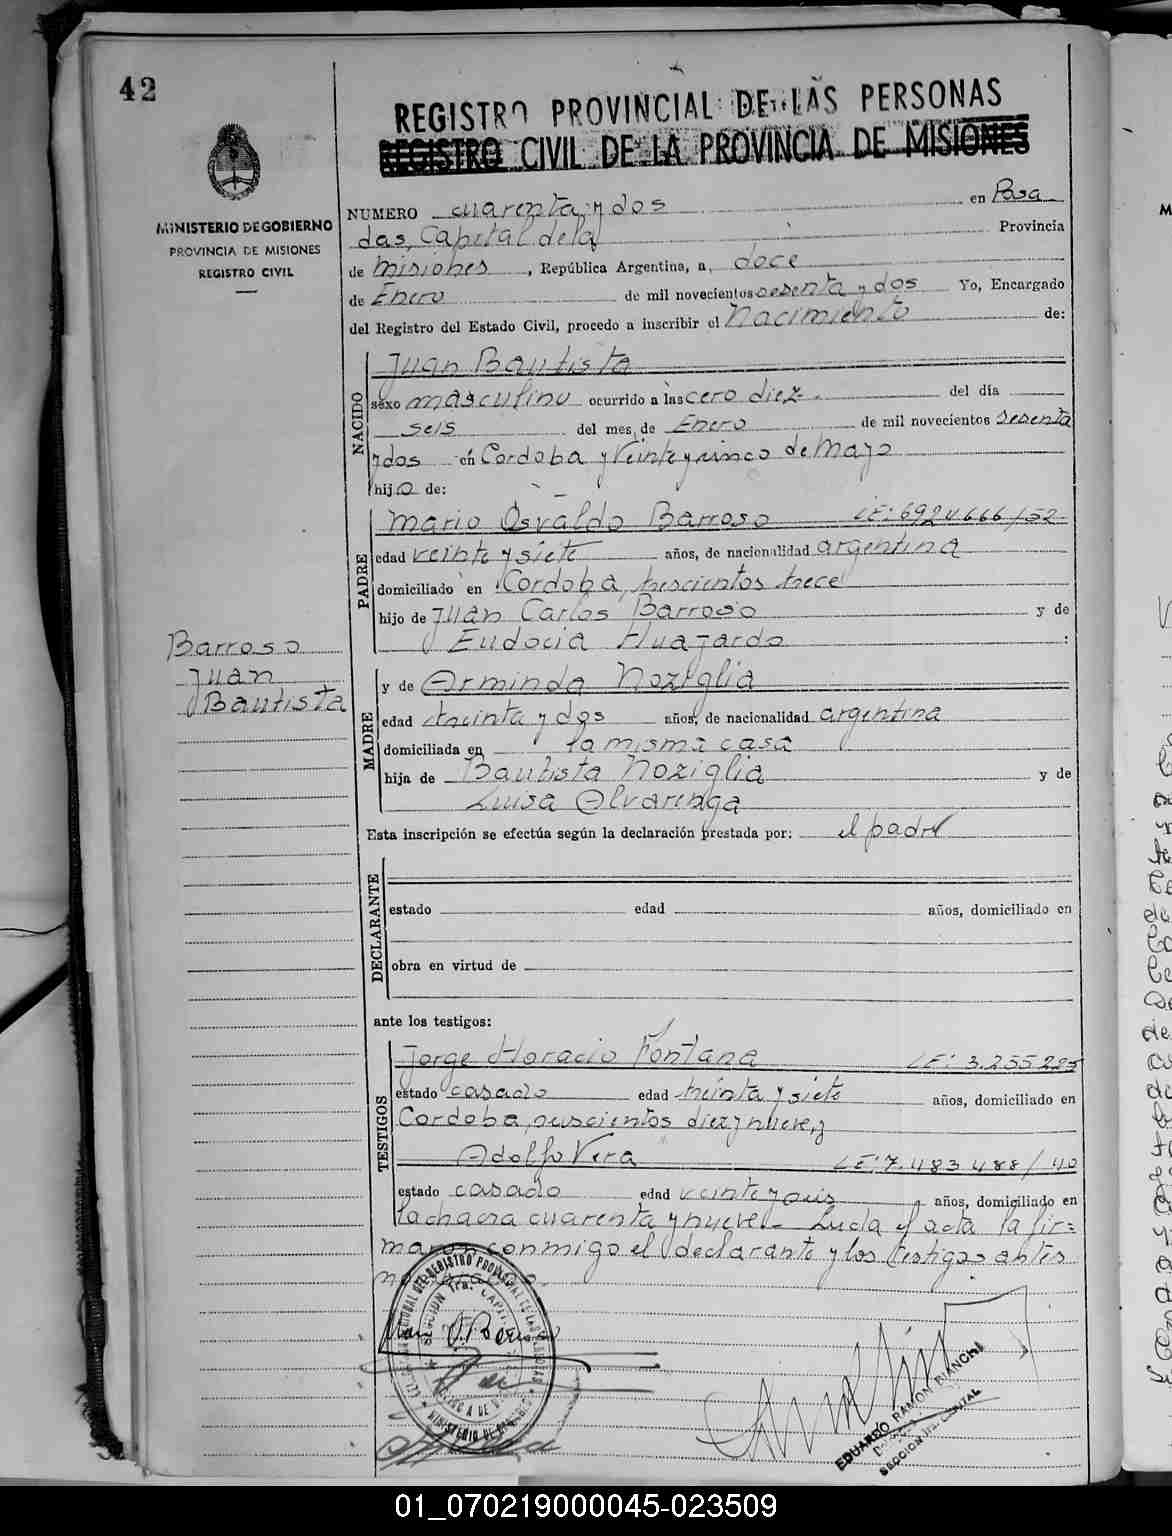 42
REGISTRO PROVINCIAL DE LAS PERSONAS
REGISTRO CIVIL DE LA PROVINCIA DE MISIONES
MINISTERIO DE GOBIERNO
PROVINCIA DE MISIONES
REGISTRO CIVIL
NUMERO cuarenta y dos en Posa
das, Capital de la Provincia
de Misiones, República Argentina, a doce
de Enero de mil novecientos sesenta y dos Yo, Encargado
del Registro del Estado Civil, procedo a inscribir el Nacimiento de:
NACIDO
Juan Bautista
sexo masculino ocurrido a las cero diez del día
seis del mes de Enero de mil novecientos sesenta
y dos en Cordoba y Veinte y cinco de Mayo
hijo de:
PADRE
Mario Osvaldo Barroso LE: 6924666/52
edad veinte y siete años, de nacionalidad argentina
domiciliado en Cordoba, trescientos trece
hijo de Juan Carlos Barroso y de
Eudocia :
Barroso
Juan
Bautista
MADRE
y de Arminda Noziglia
edad treinta y dos años, de nacionalidad argentina
domiciliada en la misma casa
hija de Bautista Noziglia y de
Luisa Alvarenga
Esta inscripción se efectúa según la declaración prestada por: el padre
DECLARANTE
estado edad años, domiciliado en
obra en virtud de
ante los testigos:
TESTIGOS
Jorge Horacio Fontana LE: 3.255.225
estado casado edad treinta y siete años, domiciliado en
Cordoba, diez y nueve, y
Adolfo Vera LE: 7.483.488/40
estado casado edad veinte y años, domiciliado en
la chacra cuarenta y nueve.- Leida el acta la fir=
maron conmigo el declarante y los testigos antes
EDUARDO RAMON BIANCHI
01_070219000045-023509